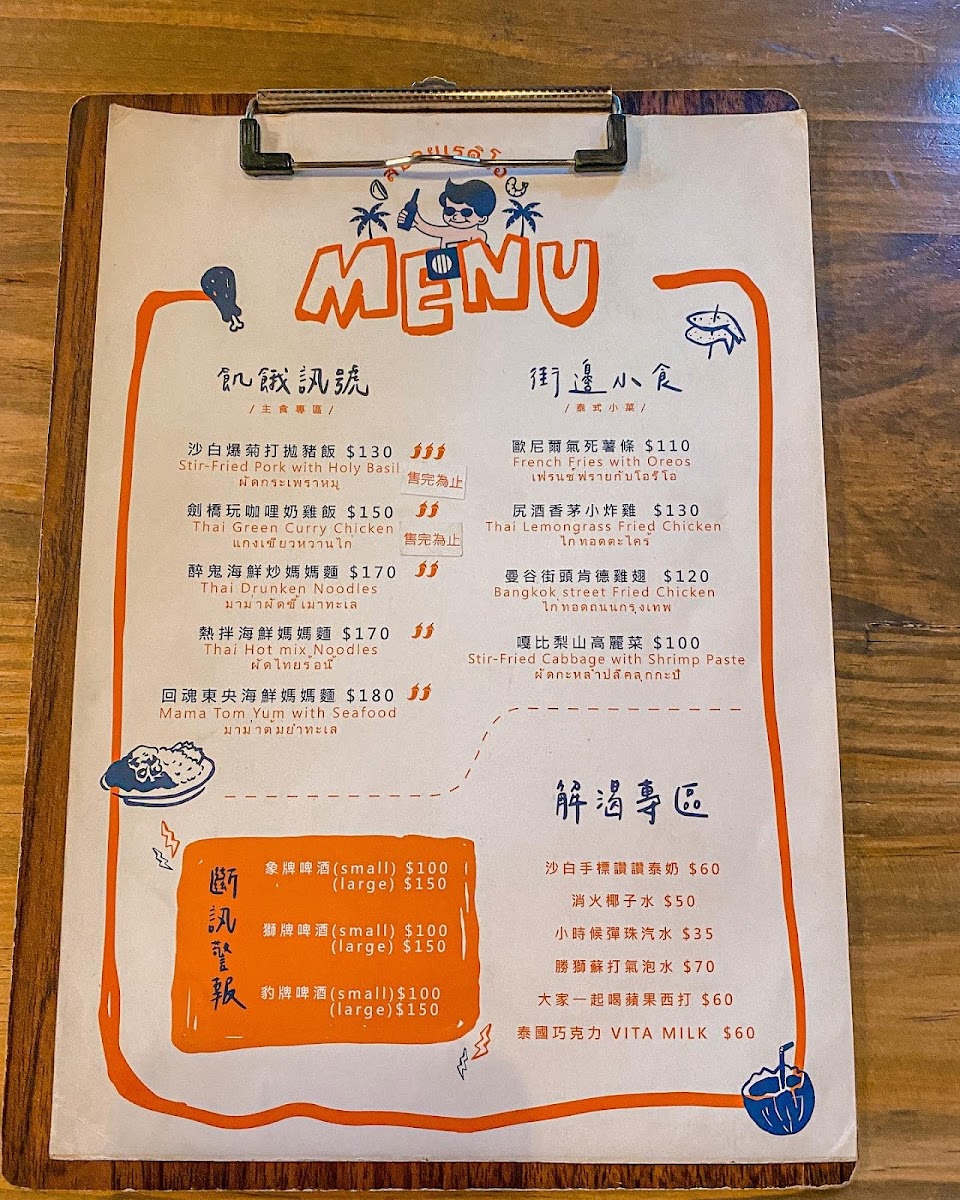 MENU
飢餓訊號
/主食專區/
沙白爆菊打拋豬飯 $130
Stir-Fried Pork with Holy Basil
ผัดกระเพราหมู
售完為止
劍橋玩咖哩奶雞飯 $150
Thai Green Curry Chicken
แกงเขียวหวานไก่
售完為止
醉鬼海鮮炒媽媽麵 $170
Thai Drunken Noodles
มาม่าผัดขี้เมาทะเล
熱拌海鮮媽媽麵 $170
Thai Hot mix Noodles
ผัดไทยร้อนี้
回魂東央海鮮媽媽麵 $180
Mama Tom Yum with Seafood
มาม่าต้มยำทะเล
街邊小食
/泰式小菜/
歐尼爾氣死薯條 $110
French Fries with Oreos
เฟรนช์ฟรายกับโอรีโอ
尻酒香茅小炸雞 $130
Thai Lemongrass Fried Chicken
ไก่ทอดตะไคร้
曼谷街頭肯德雞翅 $120
Bangkok street Fried Chicken
ไก่ทอดถนนกรุงเทพ
嘎比梨山高麗菜 $100
Stir-Fried Cabbage with Shrimp Paste
ผัดกะหล่ำปลีคลุกกะปิ
斷訊警報
象牌啤酒(small) $100
(large) $150
獅牌啤酒(small) $100
(large) $150
豹牌啤酒(small)$100
(large)$150
解渴專區
沙白手標讚讚泰奶 $60
消火椰子水 $50
小時候彈珠汽水 $35
勝獅蘇打氣泡水 $70
大家一起喝蘋果西打 $60
泰國巧克力 VITA MILK $60